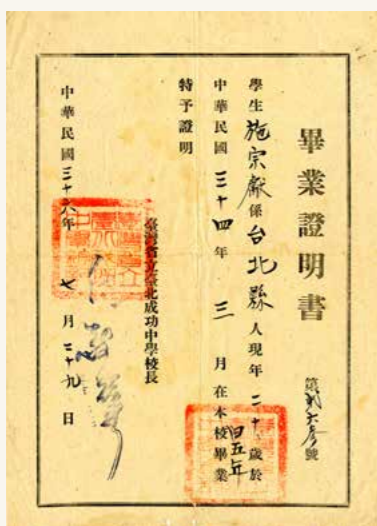 畢業證明書
第 號
學生施宗獻係台北縣人現年二十歲於
中華民國三十四年三月在本校畢業
舊五年
特予證明
臺灣省立臺北成功中學校長
中華民國三十六年七月二十九日